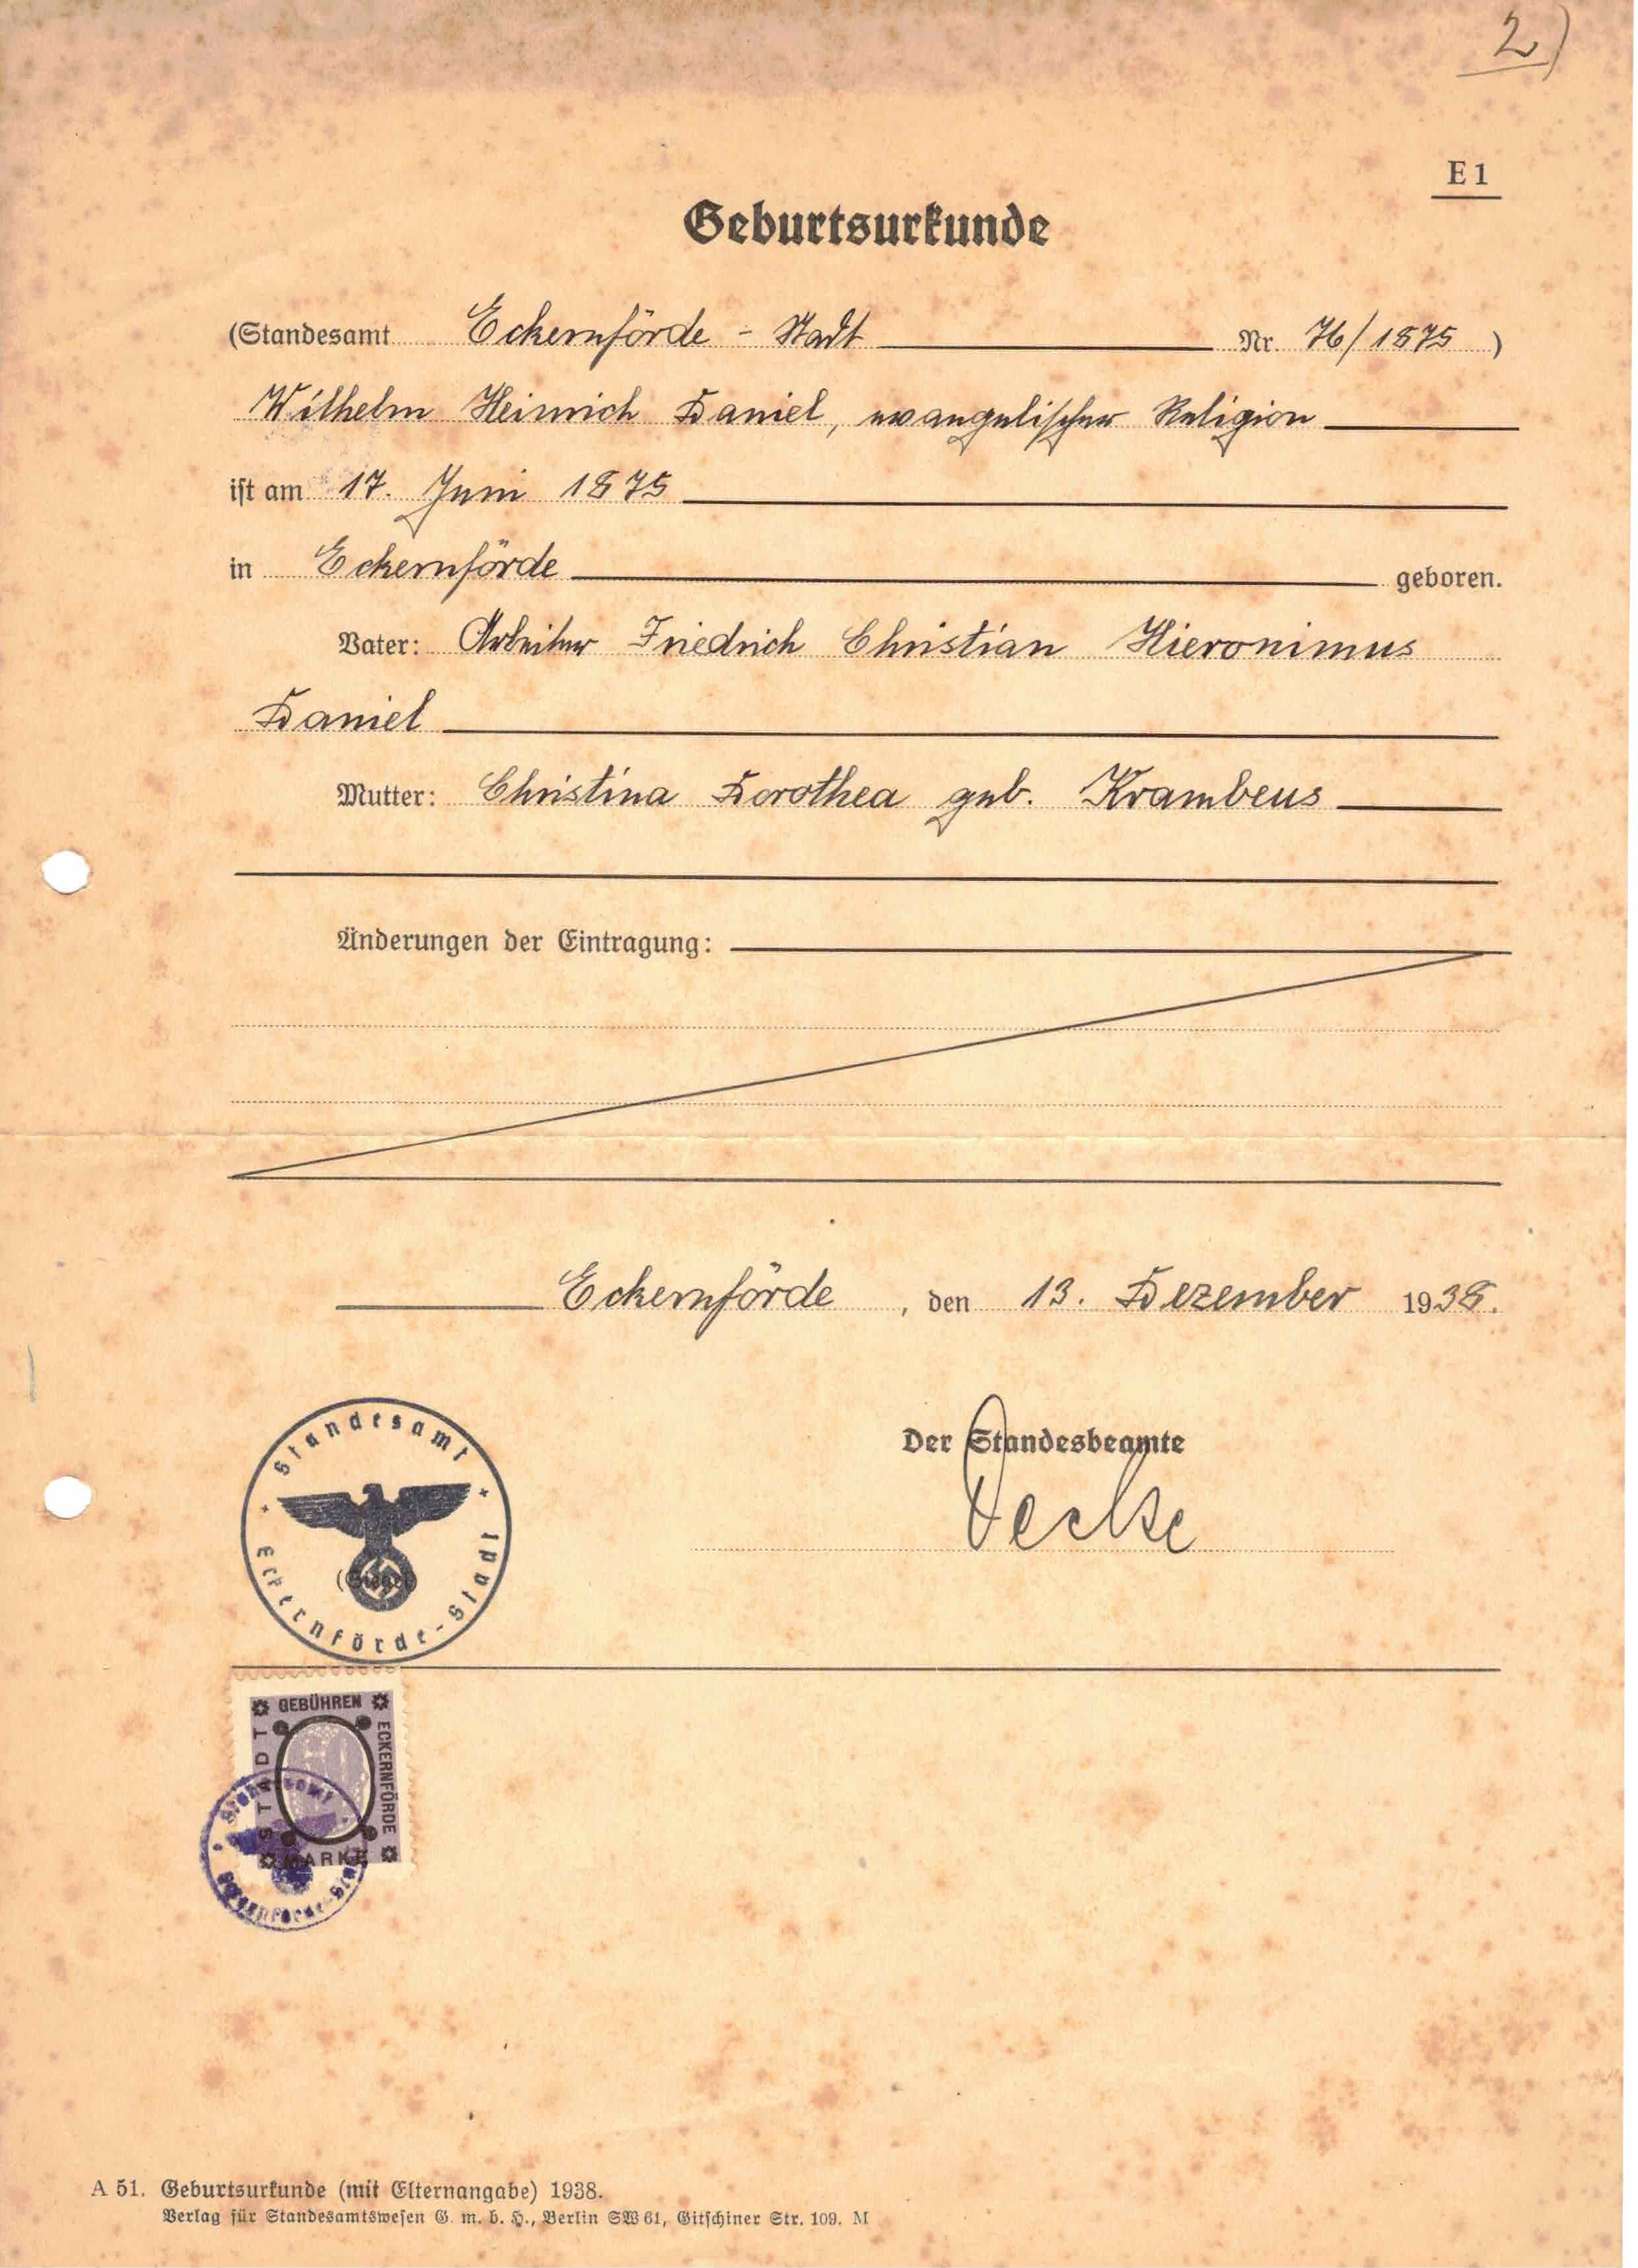 2)
E 1
Geburtsurkunde
(Standesamt Eckernförde - Stadt Nr. 76/1875 )
Wilhelm Heinrich Daniel, evangelischer Religion
ist am 17. Juni 1875
in Eckernförde geboren.
Vater: Arbeiter Friedrich Christian Hieronimus
Daniel
Mutter: Christina Dorothea geb. Krambeus
Änderungen der Eintragung:
Eckernförde , den 13. Dezember 1938.
Standesamt
Eckernförde-Stadt
(Siegel)
Der Standesbeamte
GEBÜHREN
STADT
ECKERNFÖRDE
MARKE
Standesamt
Eckernförde-Stadt
A 51. Geburtsurkunde (mit Elternangabe) 1938.
Verlag für Standesamtswesen G. m. b. H., Berlin SW 61, Gitschiner Str. 109. M